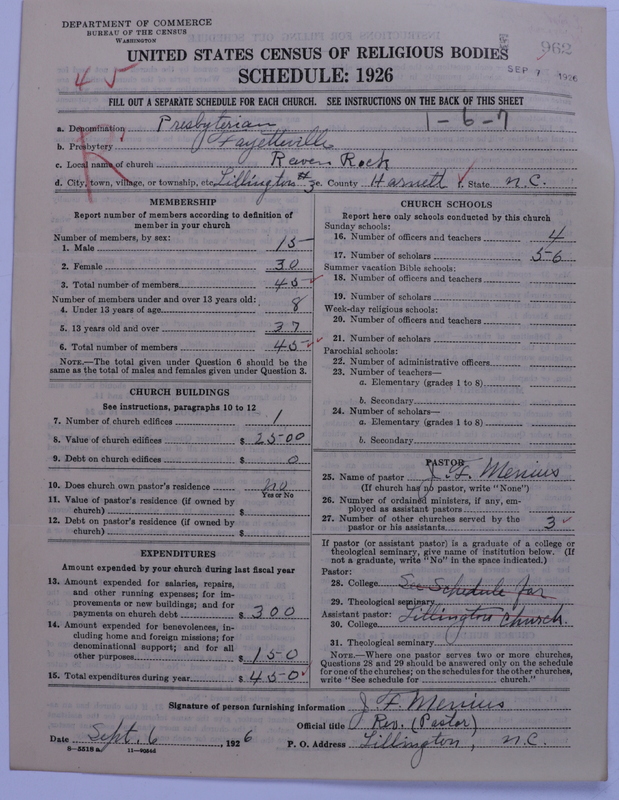 DEPARTMENT OF COMMERCE
BUREAU OF THE CENSUS
WASHINGTON
UNITED STATES CENSUS OF RELIGIOUS BODIES
SCHEDULE: 1926
962
SEP 7 1926
45
FILL OUT A SEPARATE SCHEDULE FOR EACH CHURCH. SEE INSTRUCTIONS ON THE BACK OF THIS SHEET
1-6-7
R
a. Denomination Presbyterian
b. Presbytery Fayetteville
c. Local name of church Raven Rock
d. City, town, village, or township, etc. Lillington #3 e. County Harnett f. State N.C.
MEMBERSHIP
Report number of members according to definition of
member in your church
Number of members, by sex:
1. Male 15
2. Female 30
3. Total number of members 45
Number of members under and over 13 years old:
4. Under 13 years of age 8
5. 13 years old and over 37
6. Total number of members 45
NOTE.—The total given under Question 6 should be the
same as the total of males and females given under Question 3.
CHURCH BUILDINGS
See instructions, paragraphs 10 to 12
7. Number of church edifices 1
8. Value of church edifices $ 2500
9. Debt on church edifices $ 0
10. Does church own pastor's residence no
Yes or No
11. Value of pastor's residence (if owned by
church) $
12. Debt on pastor's residence (if owned by
church) $
EXPENDITURES
Amount expended by your church during last fiscal year
13. Amount expended for salaries, repairs,
and other running expenses; for im-
provements or new buildings; and for
payments on church debt $ 300
14. Amount expended for benevolences, in-
cluding home and foreign missions; for
denominational support; and for all
other purposes $ 150
15. Total expenditures during year $ 450
CHURCH SCHOOLS
Report here only schools conducted by this church
Sunday schools:
16. Number of officers and teachers 4
17. Number of scholars 56
Summer vacation Bible schools:
18. Number of officers and teachers
19. Number of scholars
Week-day religious schools:
20. Number of officers and teachers
21. Number of scholars
Parochial schools:
22. Number of administrative officers
23. Number of teachers—
a. Elementary (grades 1 to 8)
b. Secondary
24. Number of scholars—
a. Elementary (grades 1 to 8)
b. Secondary
PASTOR
25. Name of pastor J. F. Menius
(If church has no pastor, write "None")
26. Number of ordained ministers, if any, em-
ployed as assistant pastors
27. Number of other churches served by the
pastor or his assistants 3
If pastor (or assistant pastor) is a graduate of a college or
theological seminary, give name of institution below. (If
not a graduate, write "No" in the space indicated.)
Pastor:
28. College See Schedule for
29. Theological seminary
Assistant pastor: Lillington Church.
30. College
31. Theological seminary
NOTE.—Where one pastor serves two or more churches,
Questions 28 and 29 should be answered only on the schedule
for one of the churches; on the schedules for the other churches,
write "See schedule for church."
Signature of person furnishing information J. F. Menius
Official title Rev. (Pastor)
Date Sept. 6, 1926 P. O. Address Lillington, N.C.
8-5518 a